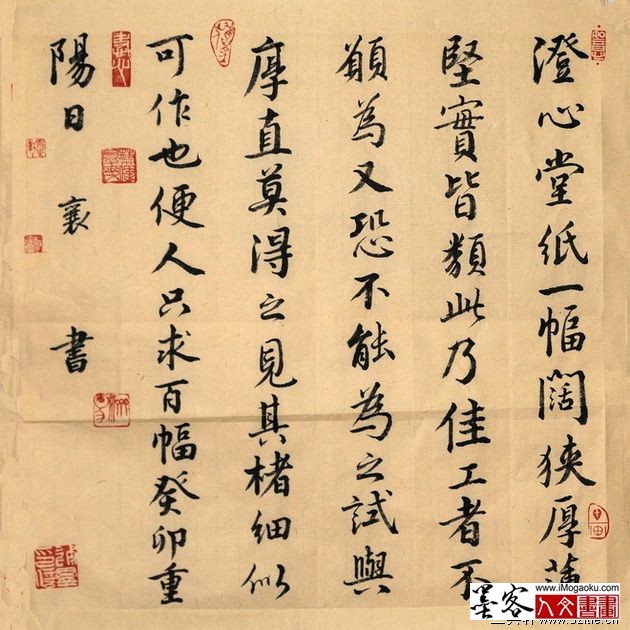 澄心堂紙一幅闊狹厚薄
堅實皆類此乃佳工者不
願為又恐不能為之試與
厚直莫得之見其楮細似
可作也便人只求百幅癸卯重
陽日襄書
www.iMogaoku.com
墨客
人文書畫